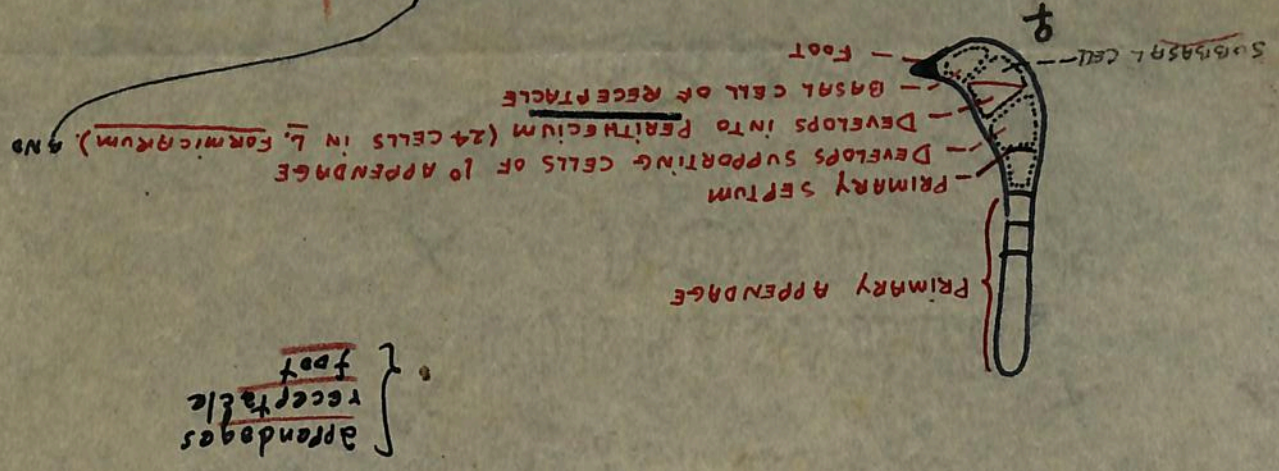 appendages
receptacle
foot
PRIMARY APPENDAGE
PRIMARY SEPTUM
DEVELOPS SUPPORTING CELLS OF 1° APPENDAGE
DEVELOPS INTO PERITHECIUM (24 CELLS IN L. FORMICARUM). AND
BASAL CELL OF RECEPTACLE
FOOT
SUBBASAL CELL